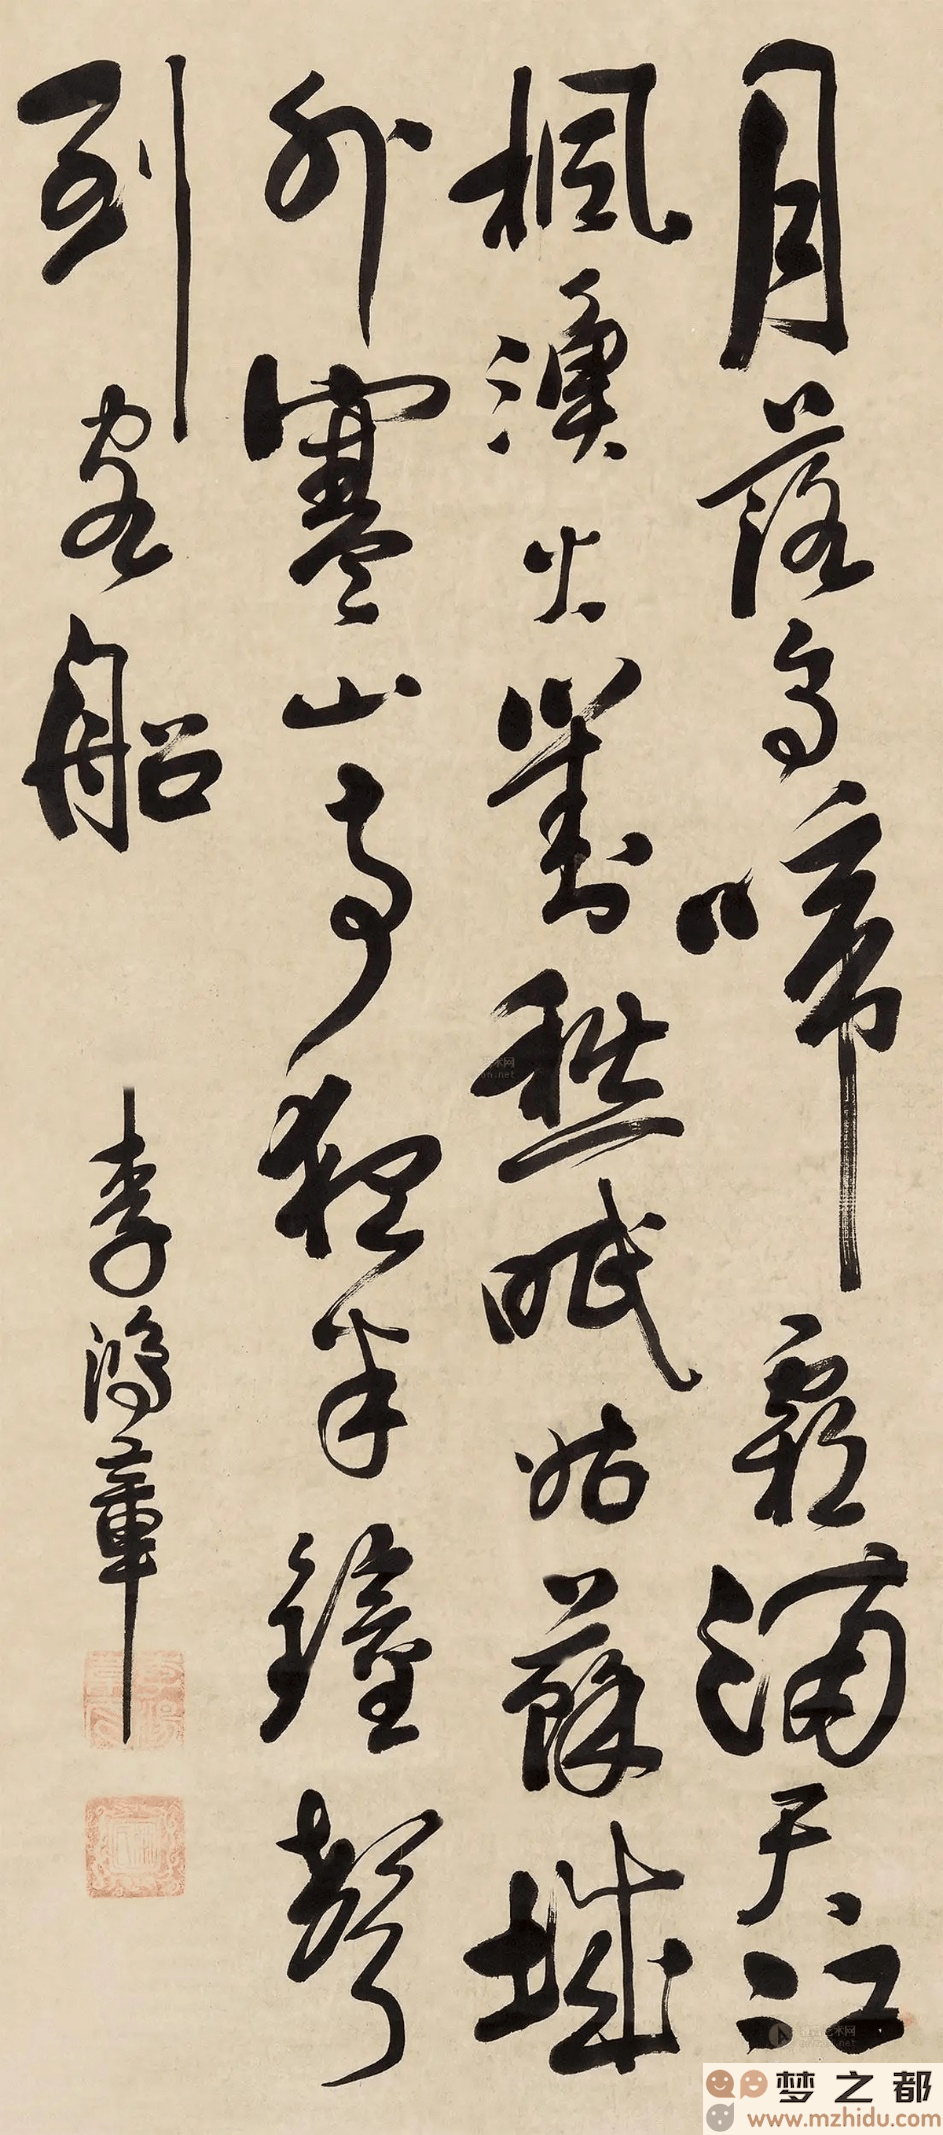 月落烏啼霜滿天江
楓漁火對愁眠姑蘇城
外寒山寺夜半鐘聲
到客船
李鴻章
梦之都
www.mzhidu.com